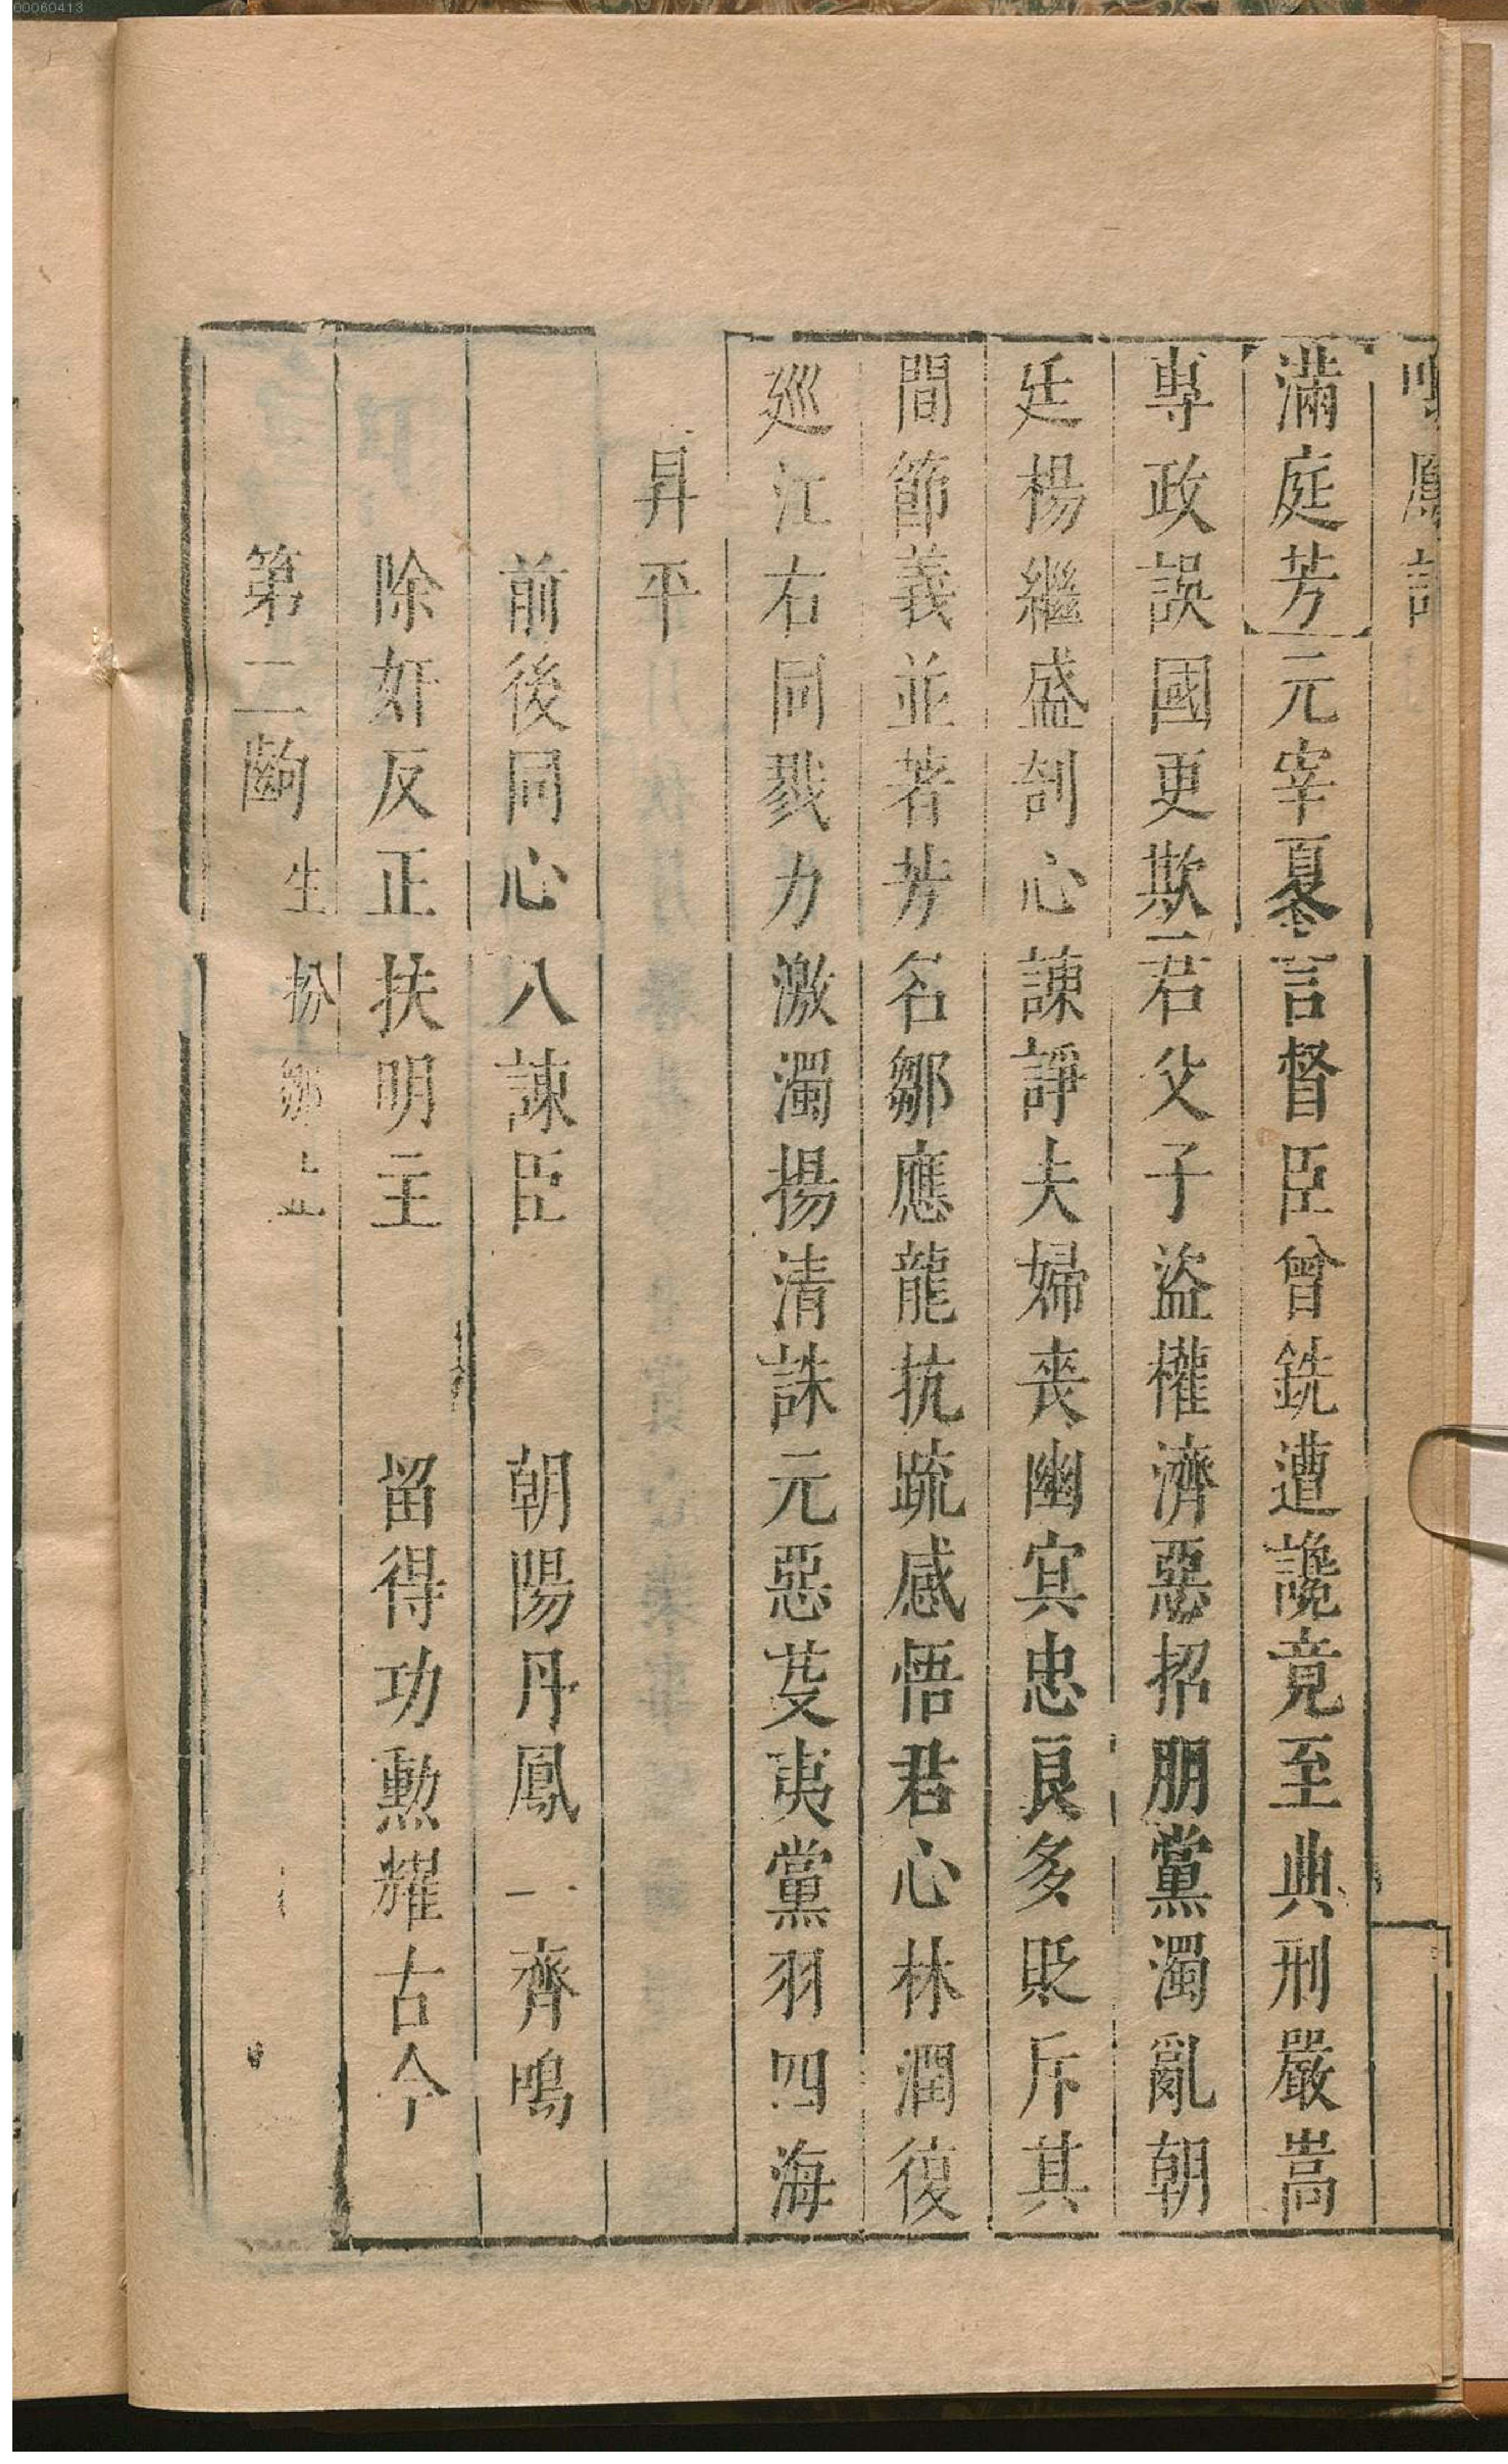 00060413
鳴鳳記
滿庭芳元宰夏言督臣曾銑遭讒竟至典刑嚴嵩
專政誤國更欺君父子盜權濟惡招朋黨濁亂朝
廷楊繼盛刳心諫諍夫婦喪幽㝠忠良多貶斥其
間節義並著芳名鄒應龍抗疏感悟君心林潤復
巡江右同戮力激濁揚清誅元惡芟夷黨羽四海
昇平
前後同心八諫臣　朝陽丹鳳一齊鳴
除奸反正扶明主　留得功勲耀古今
第二齣 生扮鄒上